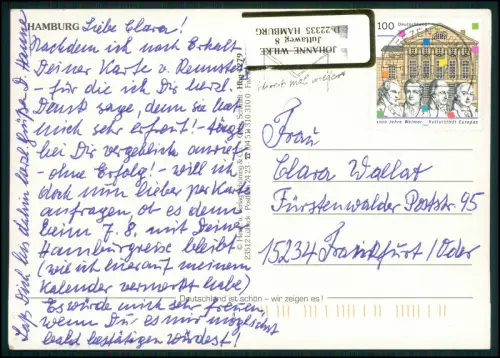 HAMBURG
Liebe Clara!
Nachdem ich nach Erhalt
Deiner Karte v. Rennsteig
- für die ich Dir herzl.
Dank sage, denn sie hat
mich sehr erfreut! -
bei Dir vergeblich anrief
- ohne Erfolg! - will ich
doch nun lieber per Karte
anfragen, ob es denn
beim 7. 8. mit Deiner
Hamburgreise bleibt
(wie ich hierauf meinem
Kalender vermerkt habe)
Es würde mich sehr freuen,
wenn Du es mir möglichst
bald bestätigen würdest!
Laß Dich bis dahin herzl. grüßen D. Hanne
JOHANNE WILKE
Juttaweg 8
D-22335 HAMBURG
100
Deutschland
1100 Jahre Weimar Kulturstadt Europas
Frau
Clara Wallat
Fürstenwalder Poststr. 95
15234 Frankfurt/Oder
Deutschland ist schön – wir zeigen es!